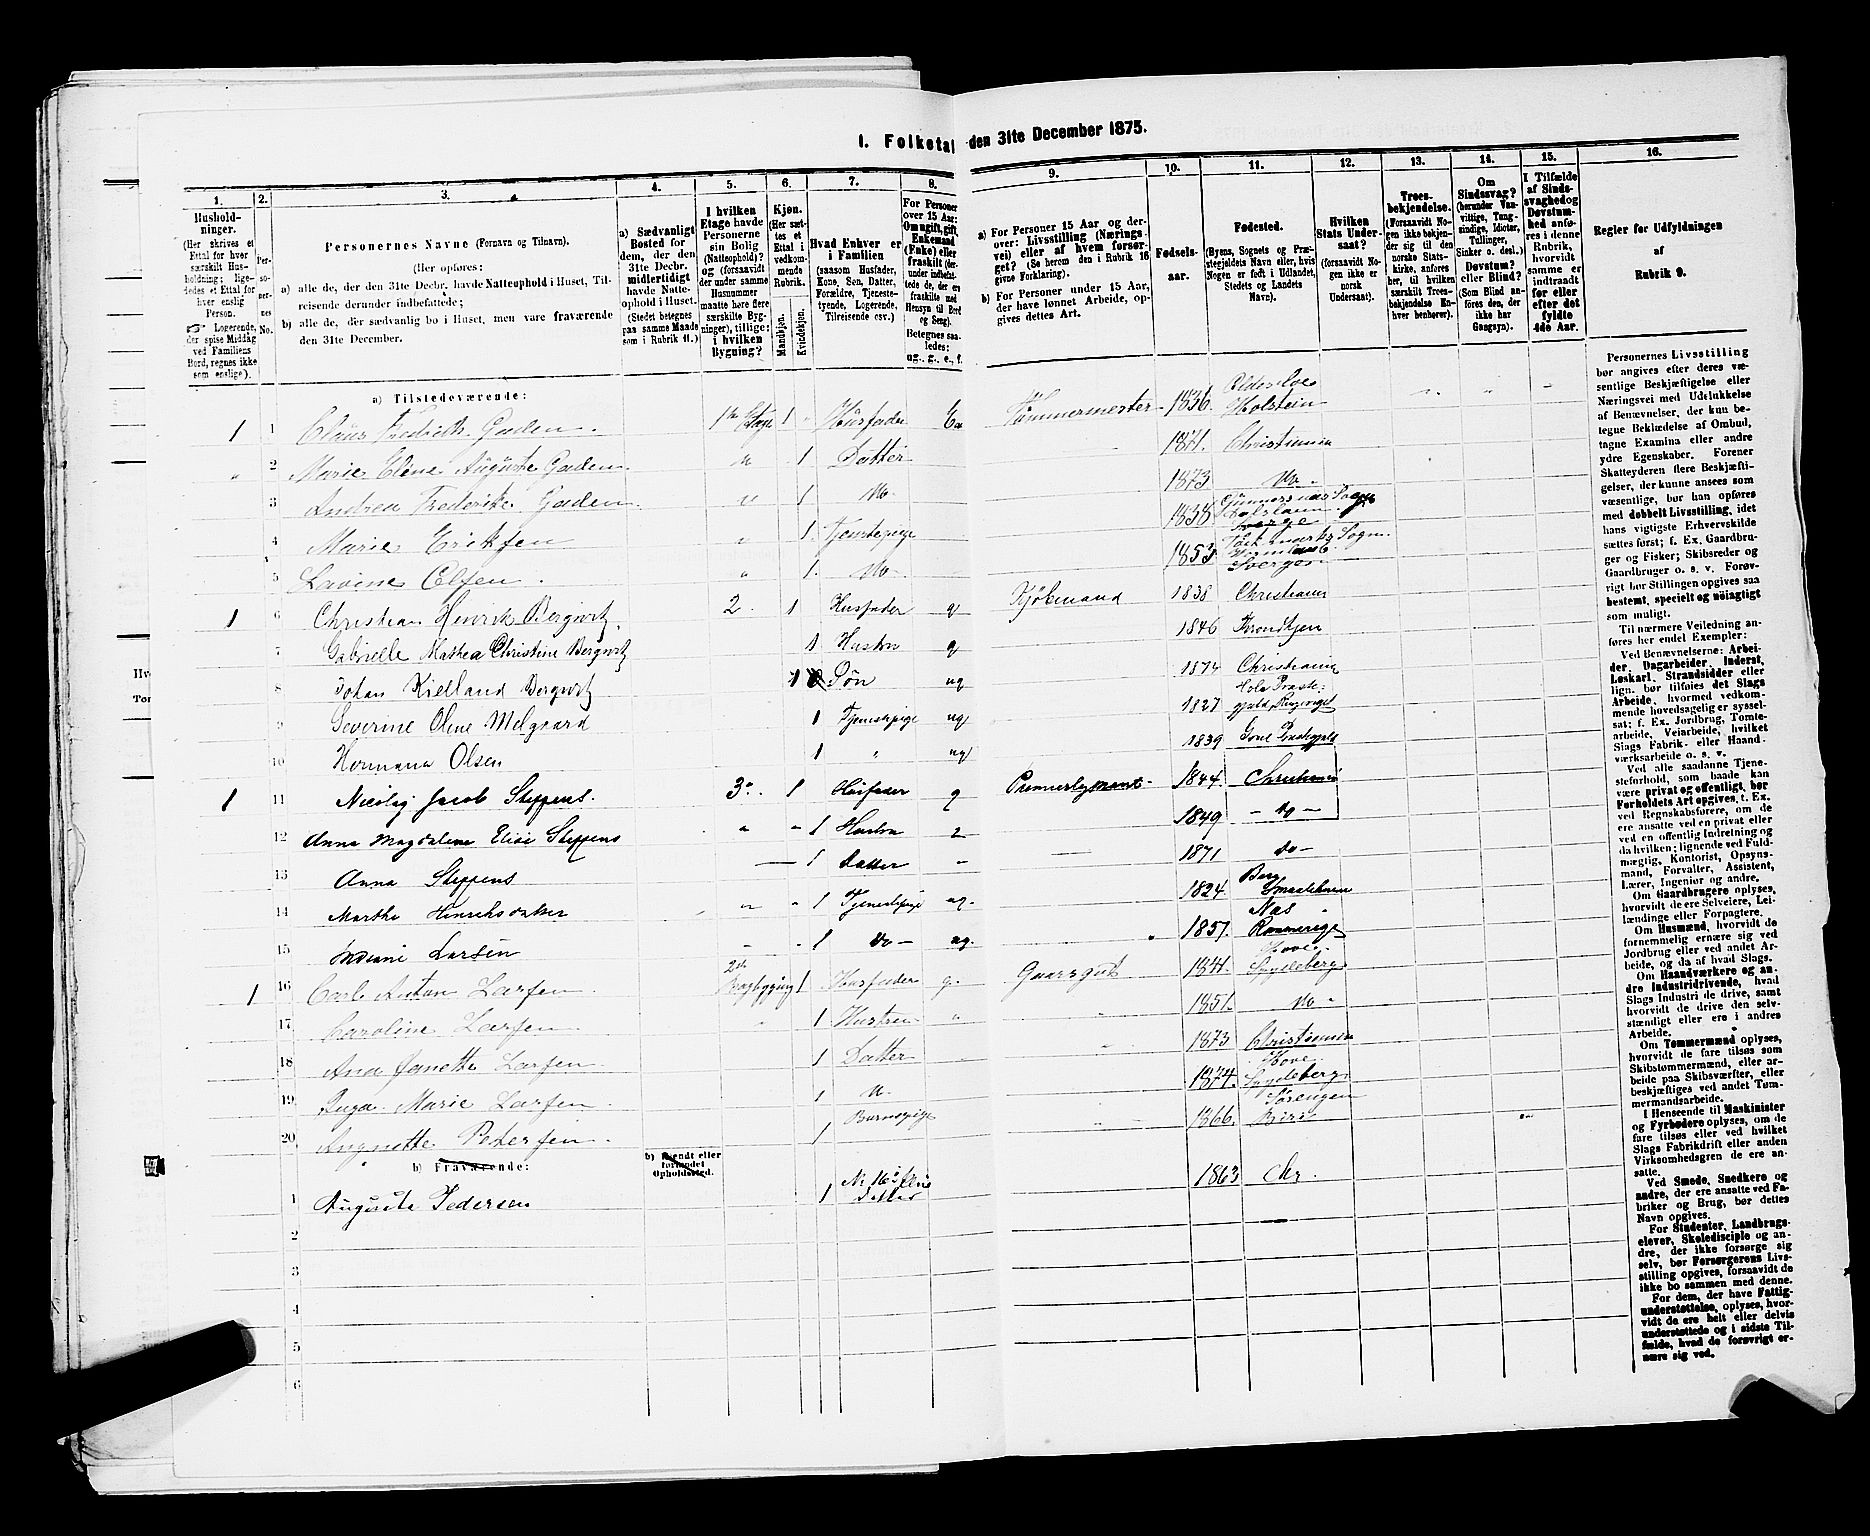 I. Folketal den 31te December 1875.
1. 2. 3. 4. 5. 6. 7. 8. 9. 10. 11. 12. 13. 14. 15. 16.
Husholdninger. (Her skrives et Ettal for hver særskilt Husholdning; ligeledes et Ettal for hver enslig Person. Logerende, der spise Middag ved Familiens Bord, regnes ikke som enslige).
Personernes No.
Personernes Navne (Fornavn og Tilnavn).
(Her opføres:
a) alle de, der den 31te Decbr. havde Natteophold i Huset, Tilreisende derunder indbefattede;
b) alle de, der sædvanlig bo i Huset, men vare fraværende den 31te December.
a) Sædvanligt Bosted for dem, der den 31te Decbr. midlertidigt havde Natteophold i Huset. (Stedet betegnes paa samme Maade som i Rubrik 11.)
I hvilken Etage havde Personerne sin Bolig (Natteophold)? og (forsaavidt der under samme Husnummer maatte høre flere særskilte Bygninger), tillige: i hvilken Bygning?
Kjøn. (Her sættes et Ettal i vedkommende Rubrik.
Mandkjøn.
Kvindekjøn.
Hvad Enhver er i Familien (saasom Husfader, Kone, Søn, Datter, Forældre, Tjenestetyende, Logerende, Tilreisende osv.)
For Personer over 15 Aar: Om ugift, gift, Enkemand (Enke) eller fraskilt (derunder indbefattede de, der ere fraskilte med Hensyn til Bord og Seng). Betegnes saaledes: ug., g., e., f.
a) For Personer 15 Aar og derover: Livsstilling (Næringsvei) eller af hvem forsørget? (Se herom den i Rubrik 16 givne Forklaring).
b) For Personer under 15 Aar, der have lønnet Arbeide, opgives dettes Art.
Fødselsaar.
Fødested. (Byens, Sognets og Præstegjeldets Navn eller, hvis Nogen er født i Udlandet, Stedets og Landets Navn).
Hvilken Stats Undersaat? (forsaavidt Nogen ikke er norsk Undersaat).
Troesbekjendelse. (Forsaavidt Nogen ikke bekjender sig til den norske Statskirke, anføres her, til hvilken særskilt Troesbekjendelse Enhver henhører).
Om Sindssvag? (herunder Vanvittige, Tungsindige, Idioter, Tullinger, Sinker o. desl.). Døvstum? eller Blind? (Som Blind anføres den, der ikke har Gangsyn).
I Tilfælde af Sindssvaghed og Døvstumhed anføres i denne Rubrik, hvorvidt samme er indtraadt før eller efter det fyldte 4de Aar.
Regler for Udfyldningen af Rubrik 9.
a) Tilstedeværende:
1 1 Claus Fredrik Gaden. 1ste Etage 1 Husfader Em Tømmermester 1836. Oldesloe Holstein
2 Marie Eline Auguste Gaden 1 Datter 1871. Christiania
3 Andrea Frederike Gaden 1 Do 1873 Do.
4 Marie Eriksen 1. Tjenstepige 1838
5 Lavine Olsen. 1. Do 1853
1 6 Christian Henrik Bergwitz. 2. 1 Husfader g Kjøbmand 1838 Christiania
7 Gabrielle Mathea Christine Bergwitz 1 Hustru g 1846 Trondhjem
8 Johan Kielland Bergwitz 1 Søn ug 1874 Christiania
9 Severine Oline Melgaard 1 Tjenestepige ug 1827 Hole Præstegjeld, Ringeriget
10 Hermana Olsen 1 " ug 1839 Præstegjeld
1 11 Nicolay Jacob Steffens. 3. 1 Husfader g Premierlieutenant 1844. Christiania
12 Anna Magdalena Elise Steffens " - 1 Hustru g 1849 - Do -
13 Anna Steffens 1 Datter - 1871 Do -
14 Marthe Hinriksdatter 1 Tjenestepige ug. 1824. Berg Smaalenene
15 Larsen 1 Do - ug. 1857. Næs Romerige
1 16 Carl Anton Larsen. 2den Bagbygning 1 Husfader g. Gaarsgut 1841 Hove Spydeberg
17 Caroline Larsen 1 Hustru " 1851. Do "
18 Ana Janette Larsen. 1 Datter 1873 Christiania
19 Inga Marie Larsen 1 Do. 1874. Hove Spydeberg
20 Angnette Petersen. 1 Barnepige 1866. Biri
b) Fraværende:
b) Kjendt eller formodet Opholdssted.
1 Augusta Pedersen 1 Datter 1863 Chr.
2
3
4
5
6
Personernes Livsstilling bør angives efter deres væsentlige Beskjæftigelse eller Næringsvei med Udelukkelse af Benævnelser, der kun betegne Beklædelse af Ombud, tagne Examina eller andre ydre Egenskaber. Forener Skatteyderen flere Beskjæftigelser, der kunne ansees som væsentlige, bør han opføres med dobbelt Livsstilling, idet hans vigtigste Erhvervskilde sættes først; f. Ex. Gaardbruger og Fisker; Skibsreder og Gaardbruger o. s. v. Forøvrigt bør Stillingen opgives saa bestemt, specielt og nøiagtigt som muligt.
Til nærmere Veiledning anføres her endel Exempler:
Ved Benævnelserne: Arbeider, Dagarbeider, Inderst, Løskarl, Strandsidder eller lign. bør tilføies det Slags Arbeide, hvormed vedkommende hovedsagelig er sysselsat; f. Ex. Jordbrug, Tomtearbeide, Veiarbeide, hvilket Slags Fabrik- eller Haandværksarbeide o. s. v.
Ved alle saadanne Tjenesteforhold, som baade kan være privat og offentligt, bør Forholdets Art opgives, t. Ex. ved Regnskabsførere, om de ere ansatte ved en privat eller ved en offentlig Indretning og da hvilken; lignende ved Fuldmægtig, Kontorist, Opsynsmand, Forvalter, Assistent, Lærer, Ingeniør og andre.
Om Gaardbrugere oplyses, hvorvidt de ere Selveiere, Leilændinge eller Forpagtere.
Om Husmænd, hvorvidt de fornemmelig ernære sig ved Jordbrug eller ved andet Arbeide, og da af hvad Slags.
Om Haandværkere og andre Industridrivende, hvad Slags Industri de drive, samt hvorvidt de drive den selvstændigt eller ere i andres Arbeide.
Om Tømmermænd oplyses, hvorvidt de fare tilsøs som Skibstømmermænd, eller arbeide paa Skibsværfter, eller beskjæftiges ved andet Tømmermandsarbeide.
I Henseende til Maskinister og Fyrbødere oplyses, om de fare tilsøs eller ved hvilket Slags Fabrikdrift eller anden Virksomhedsgren de ere ansatte.
Ved Smede, Snedkere og andre, der ere ansatte ved Fabriker og Brug, bør dettes Navn opgives.
For Studenter, Landbrugselever, Skoledisciple og andre, der ikke forsørge sig selv, bør Forsørgerens Livsstilling opgives, forsaavidt de ikke bo sammen med denne.
For dem, der have Fattigunderstøttelse, oplyses, hvorvidt de ere helt eller delvis understøttede og i sidste Tilfælde, hvad de forøvrigt ernære sig ved.